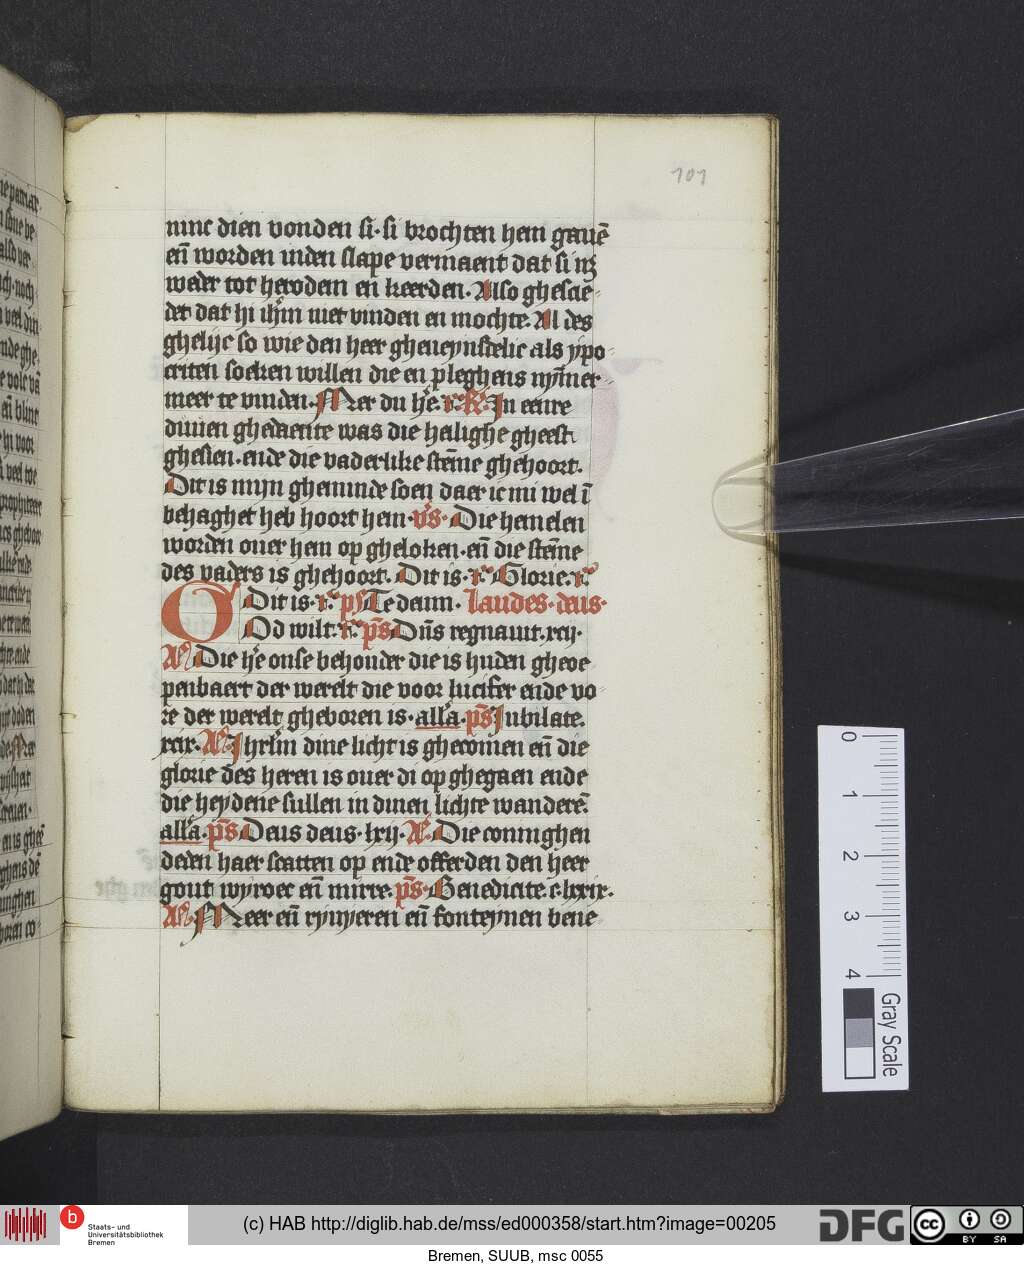 101
minc dien vonden si· si brochten hem gauē
eñ worden inden slape vermaent dat si n
weder tot herodem en keerden. Also ghesciē
der dat hi ihm niet vinden en mochte. Al des
ghelijc so wie den heer gheueynsdelic als ypo
criten soeken willen die en pleghens nymer
meer te vinden. Mer du he. r. R. In eenre
duuen ghedaente was die heilighe gheest
ghesien. ende die vaderlike stēne ghehoort.
Dit is mijn gheminde soen daer ic mi wel ī
behaghet heb hoort hem. v̄s. Die hemelen
worden ouer hem op gheloken. eñ die stēne
des vaders is ghehoort. Dit is. r. Glorie. r.
Dit is. r. ps Te deum. Laudes. deus.
OOd wilt. r. p̄s Dn̄s regnauit. xcij.
An Die he onse behouder die is huden gheoe
penbaert der werelt die voor lucifer ende vo
re der werelt gheboren is. alla. p̄s Jubilate.
xcix. An Jhrlm dine licht is ghecomen eñ die
glorie des heren is ouer di op ghegaen ende
die heydene sullen in dinen lichte wanderē.
alla. p̄s Deus deus. lxij. An Die coninghen
deden haer scatten op ende offerden den heer
gout wyroec eñ mirre. p̄s. Benedicite. c. lxxix.
An. Meer eñ ryuyeren eñ fonteynen bene
0
1
2
3
4
Gray Scale
b Staats- und
Universitätsbibliothek
Bremen
(c) HAB http://diglib.hab.de/mss/ed000358/start.htm?image=00205
DFG
cc BY SA
Bremen, SUUB, msc 0055